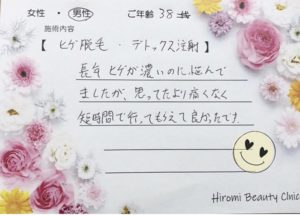 女性 ・ 男性 ご年齢 38 歳
施術内容
【 ヒゲ脱毛 ・ デトックス注射 】
長年 ヒゲが濃いのに悩んで
ましたが、思ってたより痛くなく
短時間で行ってもらえて良かったです。
Hiromi Beauty Clinic